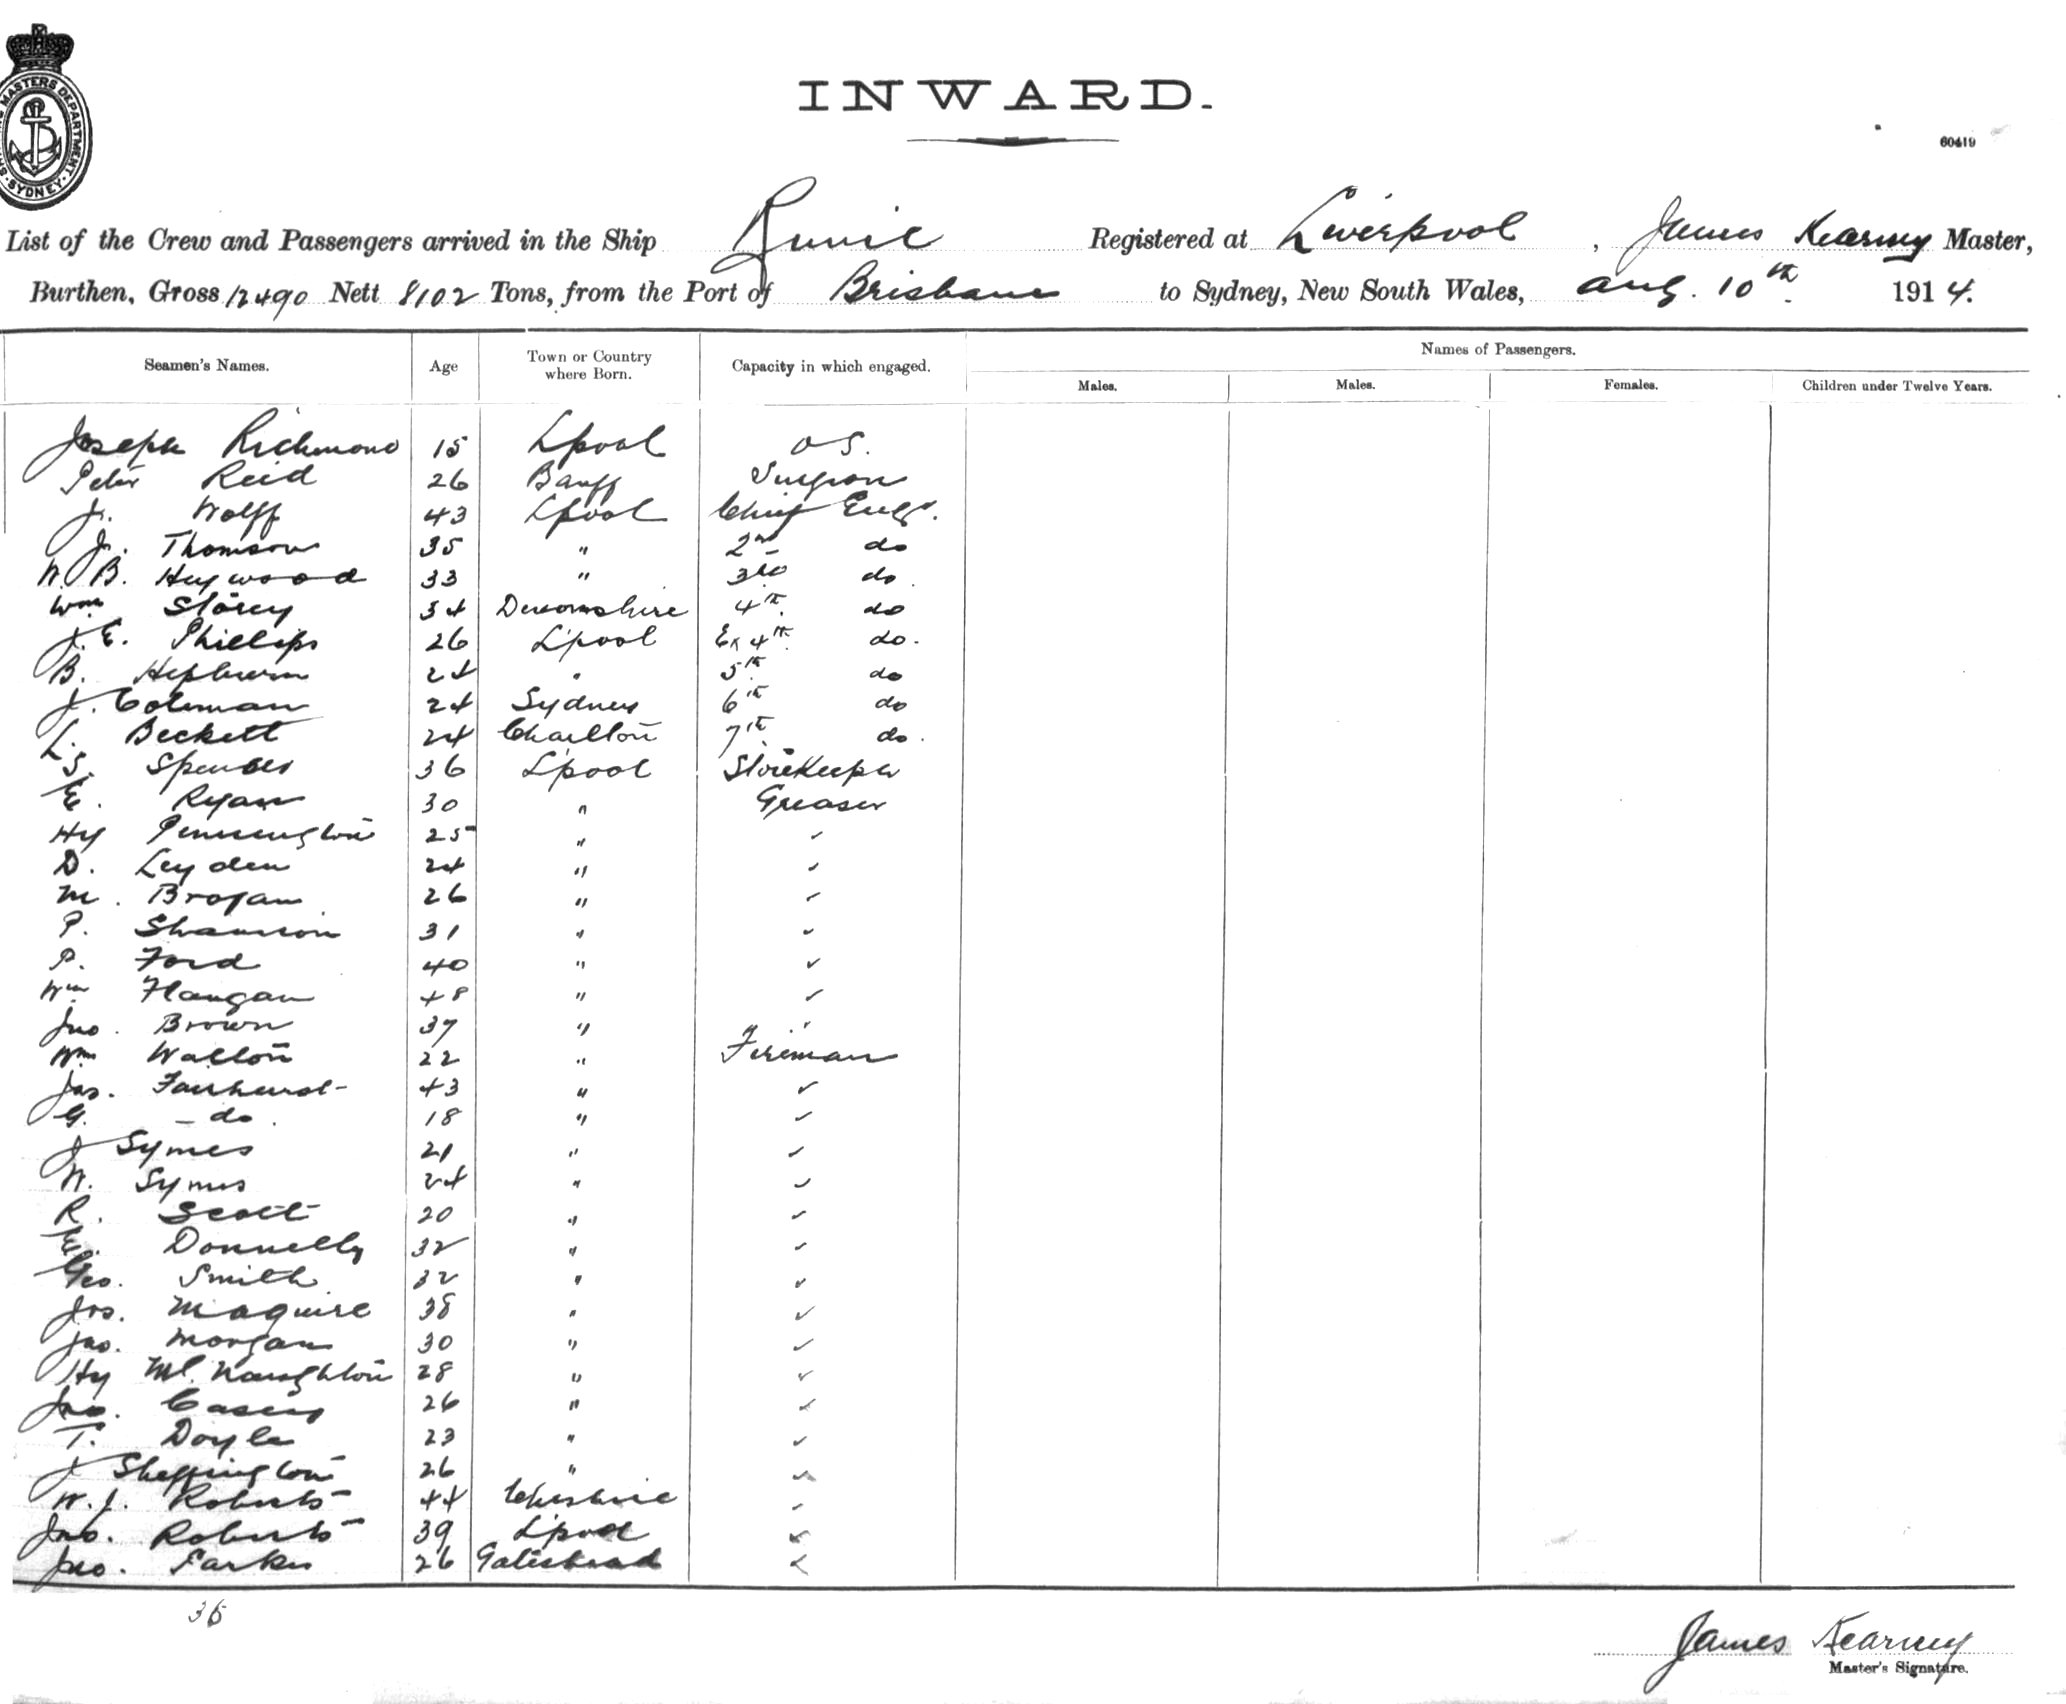 SHIPPING MASTERS DEPARTMENT. SYDNEY.
INWARD.
60419
List of the Crew and Passengers arrived in the Ship Runic Registered at Liverpool, James Kearney Master,
Burthen, Gross 12490 Nett 8102 Tons, from the Port of Brisbane to Sydney, New South Wales, Aug. 10th 1914.
Seamen's Names. Age Town or Country where Born. Capacity in which engaged. Names of Passengers.
Males. Males. Females. Children under Twelve Years.
Joseph Richmond 15 L'pool O S.
Peter Reid 26 Banff Surgeon
J. Wolff 43 L'pool Chief Engr.
J. Thomson 35 " 2nd do
W. B. Heywood 33 " 3rd do.
Wm Storey 34 Devonshire 4th do
J. E. Phillips 26 L'pool Ex 4th do.
B. Hepburn 24 " 5th do
J. Coleman 24 Sydney 6th do
L. Beckett 24 Charlton 7th do.
S. Spencer 36 L'pool Storekeeper
E. Ryan 30 " Greaser
Hy Pennington 25 " ✓
D. Leyden 24 " ✓
M. Brogan 26 " ✓
P. Shannon 31 " ✓
P. Ford 40 " ✓
Wm Flangan 48 " ✓
Jno. Brown 37 " "
Wm Walton 22 " Fireman
Jas. Fairhurst 43 " ✓
G. - do. 18 " ✓
J Symes 21 " ✓
W. Symes 24 " ✓
R. Scott 20 " ✓
E. Donnelly 32 " ✓
Geo. Smith 32 " ✓
Jos. Maguire 38 " ✓
Jas. Morgan 30 " ✓
Hy McNaughton 28 " ✓
Jno. Casey 26 " ✓
T. Doyle 23 " ✓
J 26 " ✓
W. J. Roberts 44 Cheshire ✓
Jno. Roberts 39 L'pool ✓
Jno. Parkes 26 Gateshead ✓
36
James Kearney
Master's Signature.